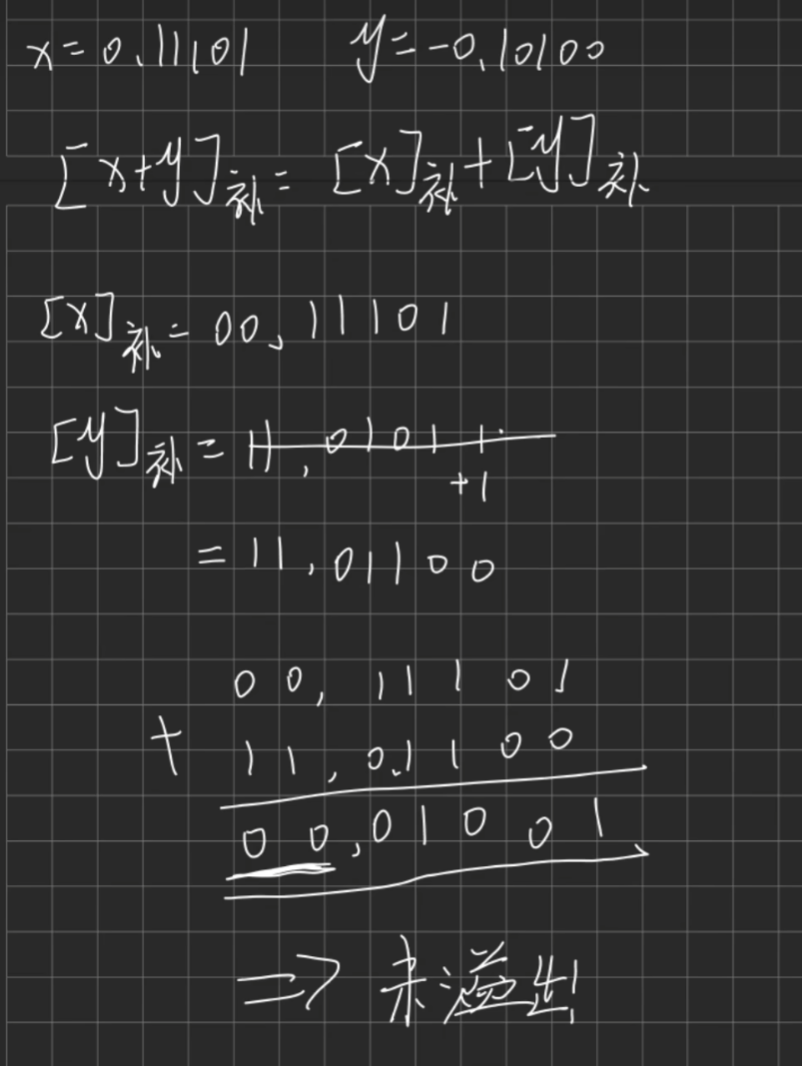 x=0.11101 y=-0.10100
[x+y]补=[x]补+[y]补
[x]补=00,11101
[y]补=11,01011
+1
=11,01100
00,11101
+ 11,01100
00,01001
=> 未溢出